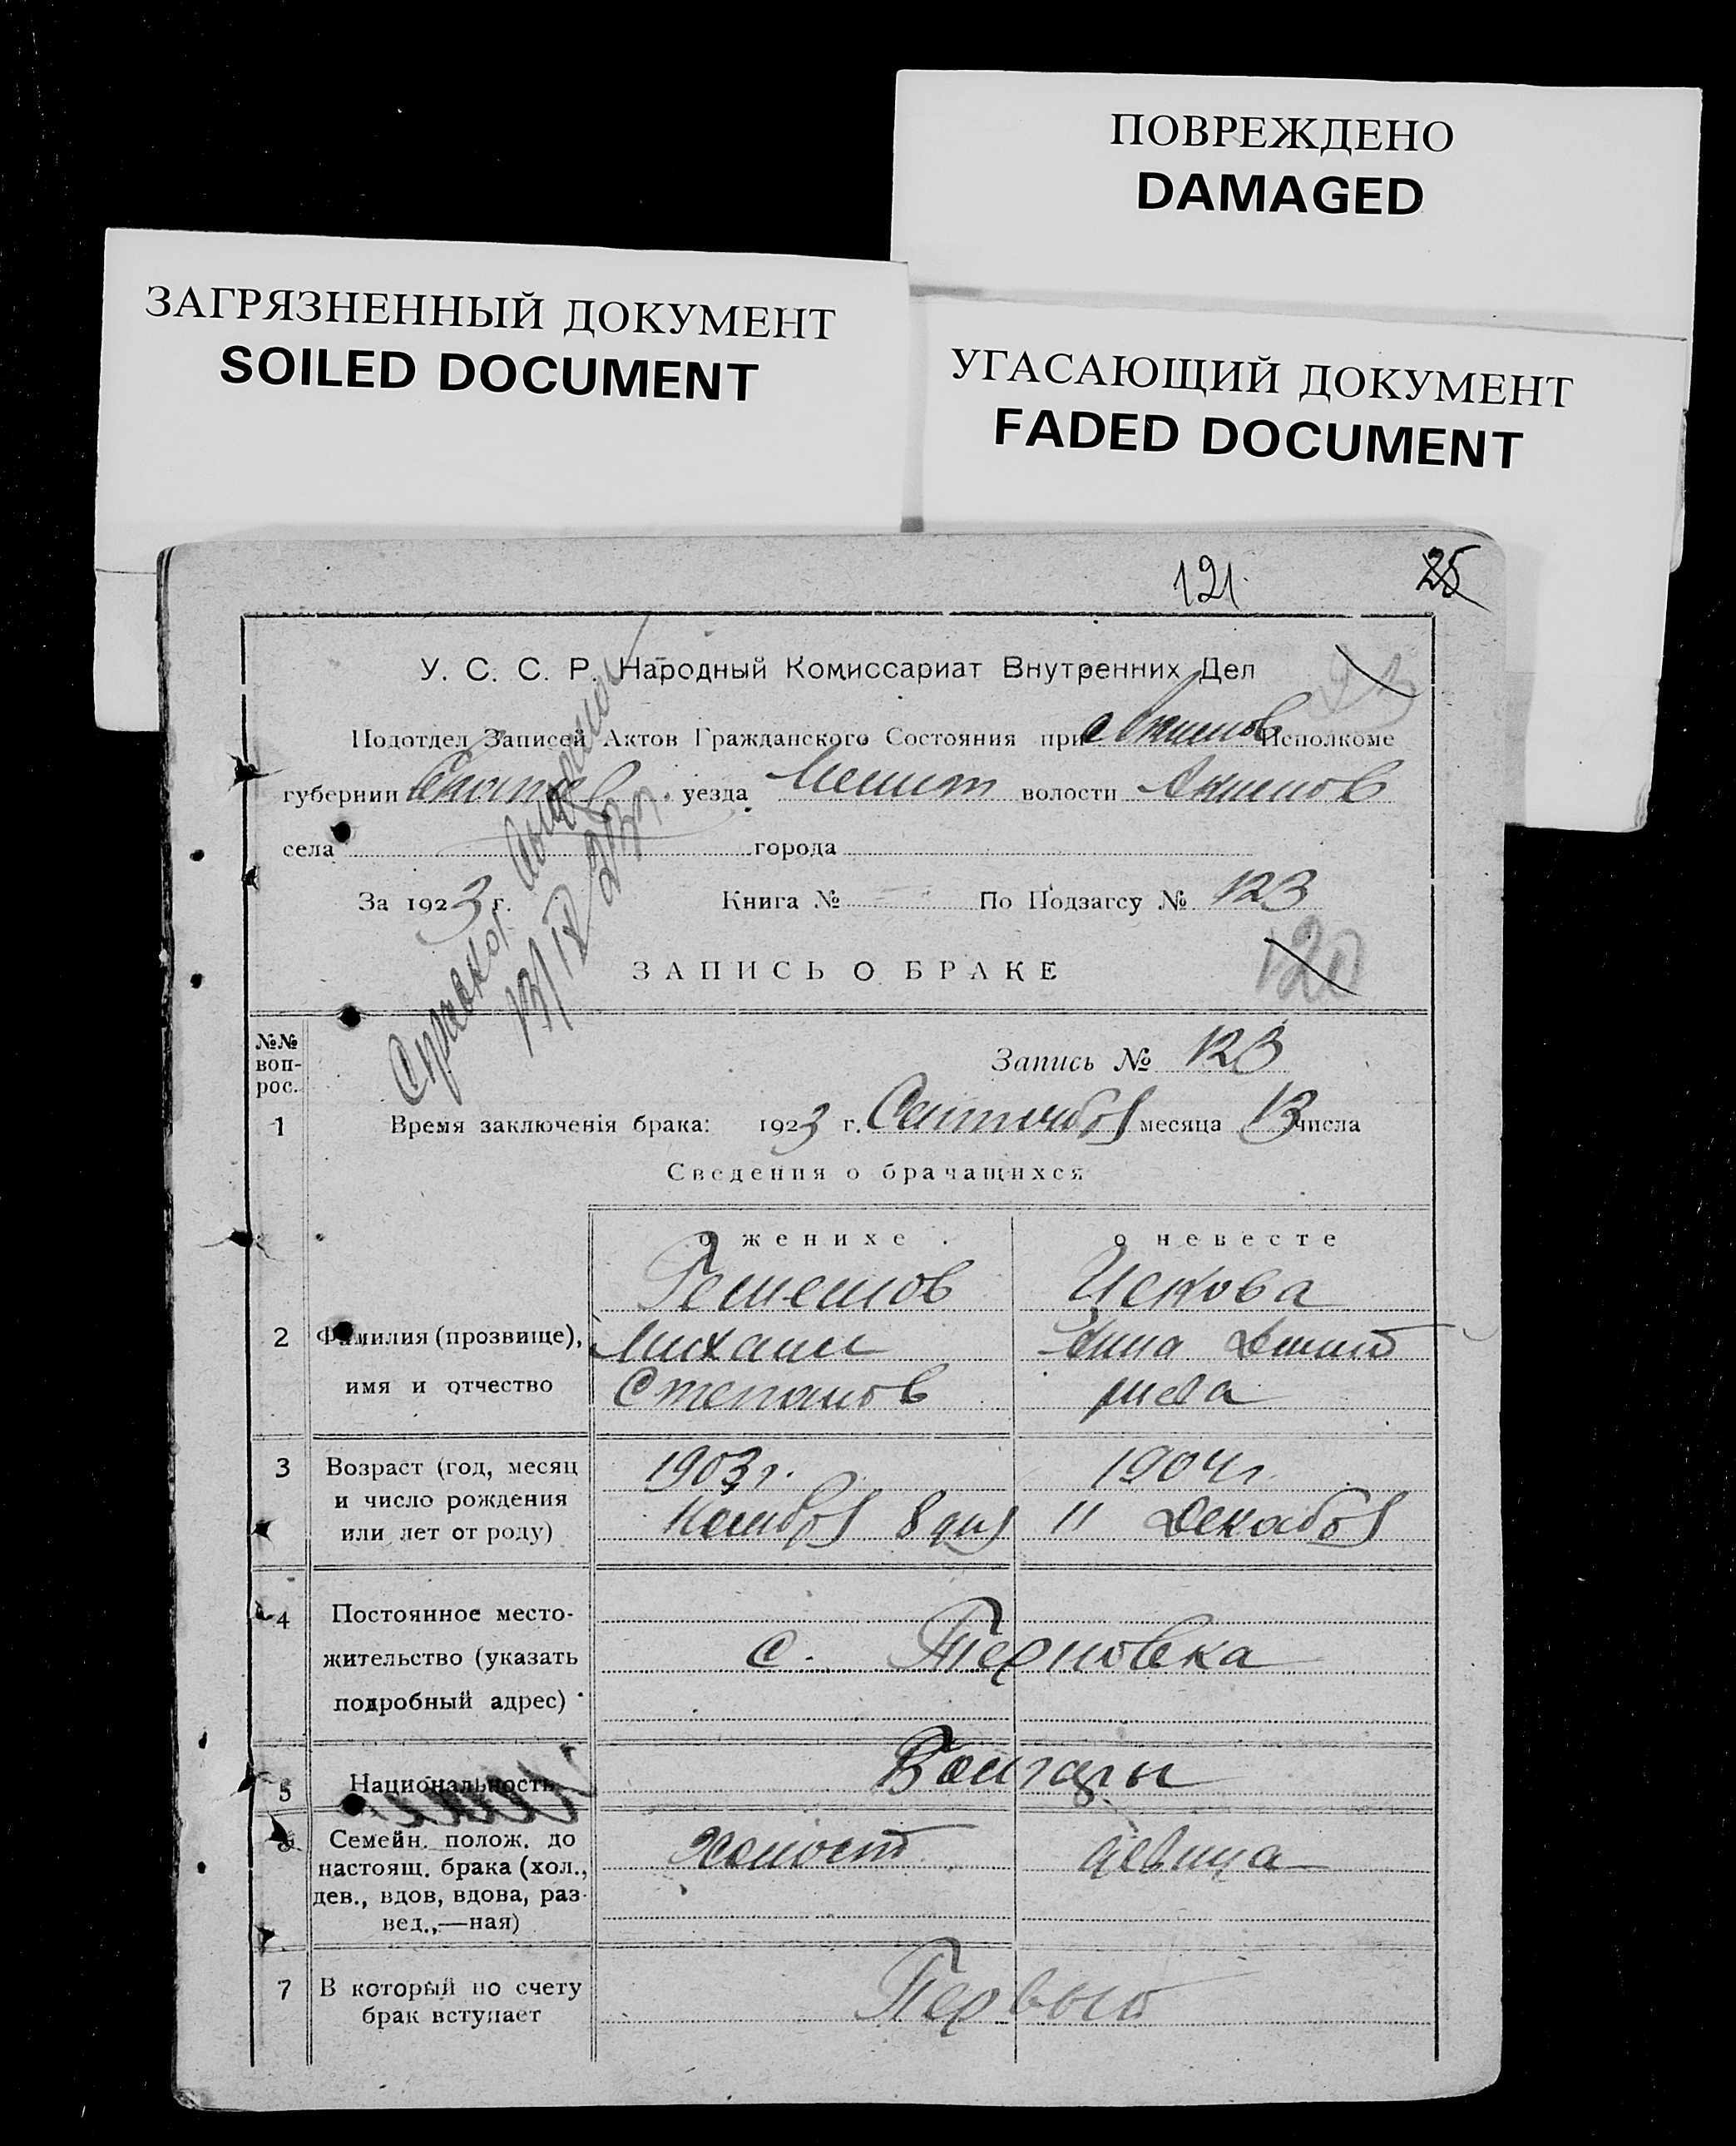 ПОВРЕЖДЕНО
DAMAGED
ЗАГРЯЗНЕННЫЙ ДОКУМЕНТ
SOILED DOCUMENT
УГАСАЮЩИЙ ДОКУМЕНТ
FADED DOCUMENT
121. 25
У. С. С. Р. Народный Комиссариат Внутренних Дел
Подотдел Записей Актов Гражданского Состояния при Акимов Исполкоме
губернии Екатер. уезда Мелит волости Акимов
села города
За 1923 г. Книга № По Подзагсу № 123
ЗАПИСЬ О БРАКЕ 120
№№ вопрос.
Запись № 123
1 Время заключенія брака: 1923 г. Сентября месяца 13 числа
Сведения о брачащихся
о женихе о невесте
Искова
2 Фамилия (прозвище), Михаил Анна Дмит
имя и отчество Степанов риева
3 Возраст (год, месяц 1903 г. 1904 г.
и число рождения Ноября 8 дня 11 Декабря
или лет от роду)
4 Постоянное место-
жительство (указать с. Терновка
подробный адрес)
5 Национальность Болгары
6 Семейн. полож. до холост девица
настоящ. брака (хол.,
дев., вдов, вдова, раз-
вед.,—ная)
7 В который по счету Первый
брак вступает